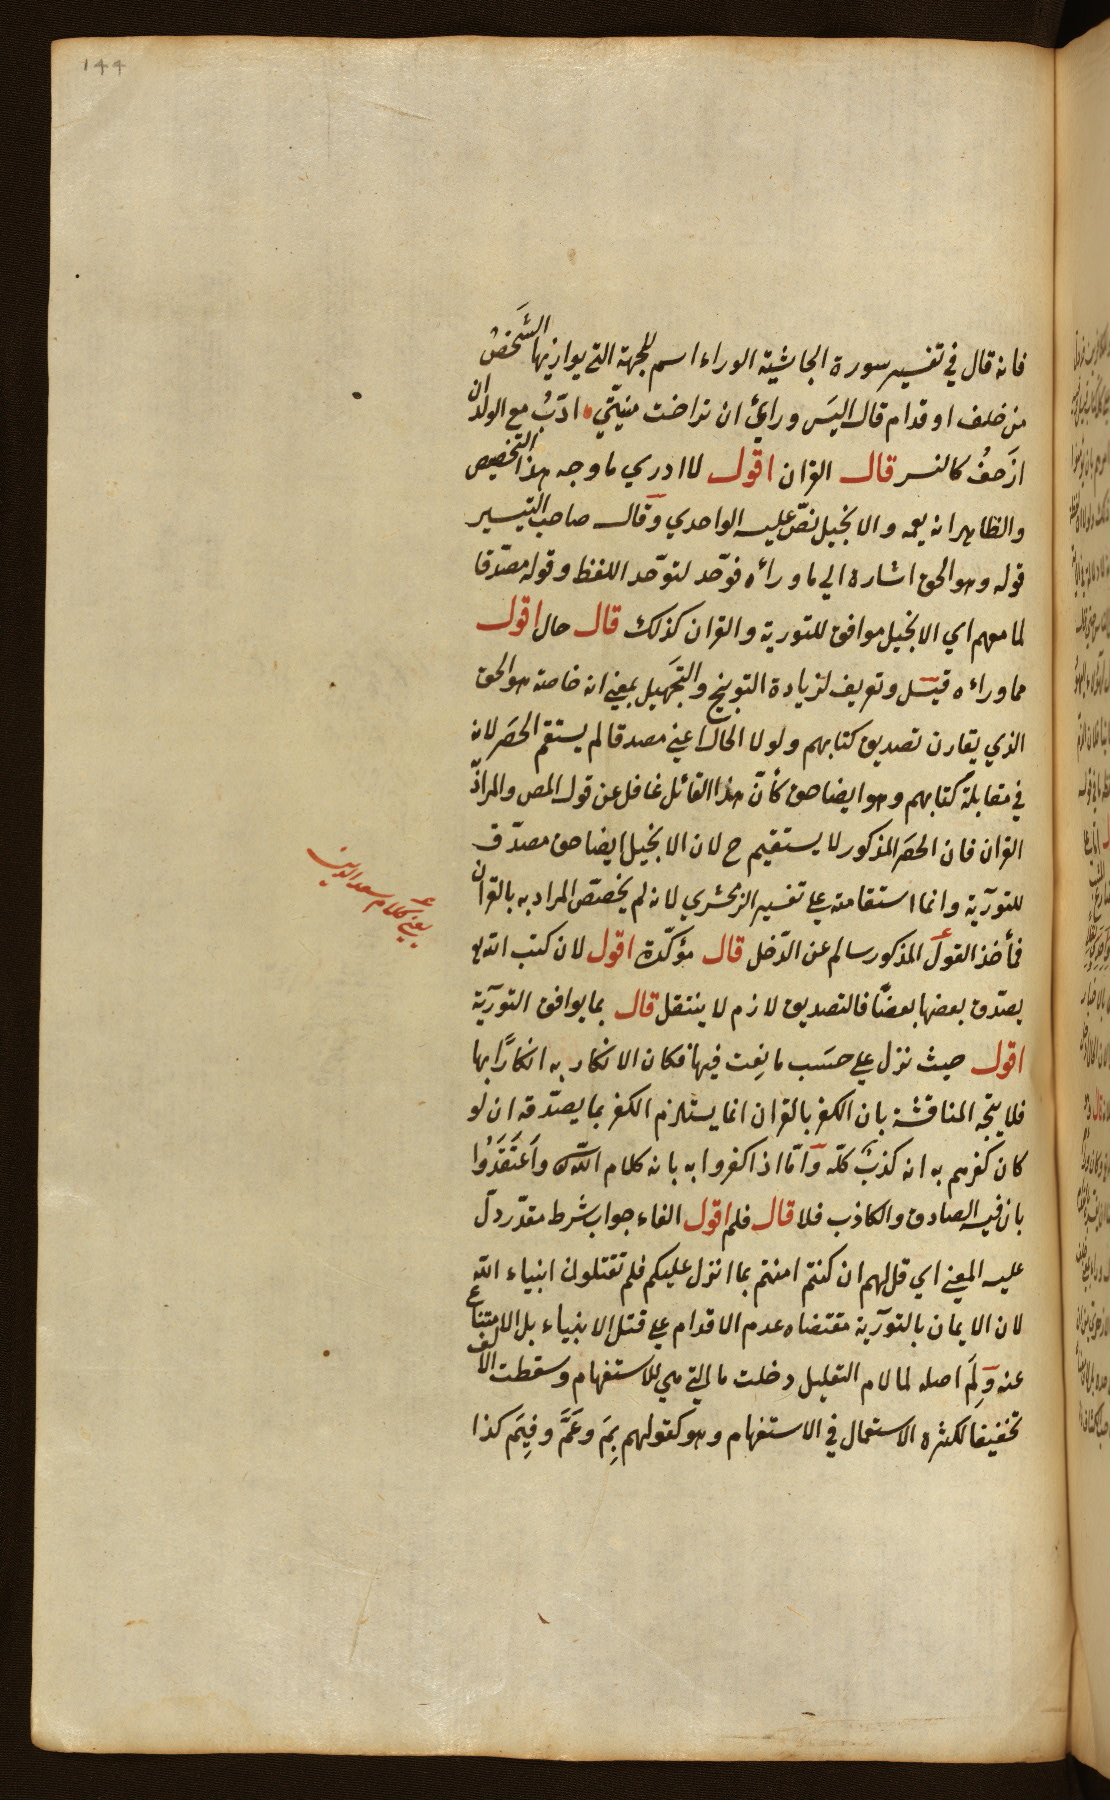 ١٤٤
فانه قال في تفسير سورة الجاثية الوراء اسم للجهة التي يواريها الشَخصُ
من خلف او قدام قال اليسَ ورائ ان تراخت منيّتي ادبّ مع الولدان
ازحفُ كالنسر قال القران اقول لا ادري ما وجه هذا التخصيص
والظاهر انه يعمه والانجيل نصّ عليه الواحدي وقال صاحب التيسير
قوله وهو الحق اشارة الي ما وراءه فوّحد لتوحّد اللفظ وقوله مصدّقا
لما معهم اي الانجيل موافق للتورية والقران كذلك قال حال اقول
مما وراءه قيل وتعريف لزيادة التوبيخ والتجهيل بمعني انه خاصة هو الحق
الذي يقارن تصديق كتابهم ولولا الحال اعني مصدقا لم يستقم الحصَر لانه
في مقابلة كتابهم وهو ايضا حق كأنّ هذا القائل غافل عن قول المص والمراد
القران فان الحصَر المذكور لا يستقيم ح لان الانجيل ايضا حق مصدّق
للتورٰية وانما استقامته علي تفسير الزمخشري لانه لم يخصّص المراد به بالقران
فمأخذ القول المذكور سالم عن الدّخل قال مؤكدّة اقول لان كتب الله تع
يصدّق بعضها بعضًا فالتصديق لازم لا ينتقل قال بما يوافق التورٰية
اقول حيث نزل علي حسَب ما نعت فيها فكان الانكار به انكارًا بها
فلا يتجّه المناقشة بان الكفر بالقران انما يستلزم الكفر بما يصدّقه ان لو
كان كفرهم به انه كذبٌ كلّه وَامّا اذا كفروا به بانه كلام اللّٰه واَعتَقَدُوا
بان فيه الصادق والكاذب فلا قال فلم اقول الفاء جواب شرط مقدّر دلّ
عليه المعني اي قل لهم ان كنتم امنتم بما انزل عليكم فلم تقتلون انبياء الله
لان الايمان بالتورٰية مقتضاه عدم الاقدام علي قتل الانبياء بل الامتناع
عنه وَلِمَ اصله لما لام التعليل دخلت ما التي هي للاستفهام وسقطت الالف
تخفيفا لكثرة الاستعمال في الاستفهام وهو كقولهم بِمَ وعَمَّ وفِيَم كذا
يعني كلام سعد الدين